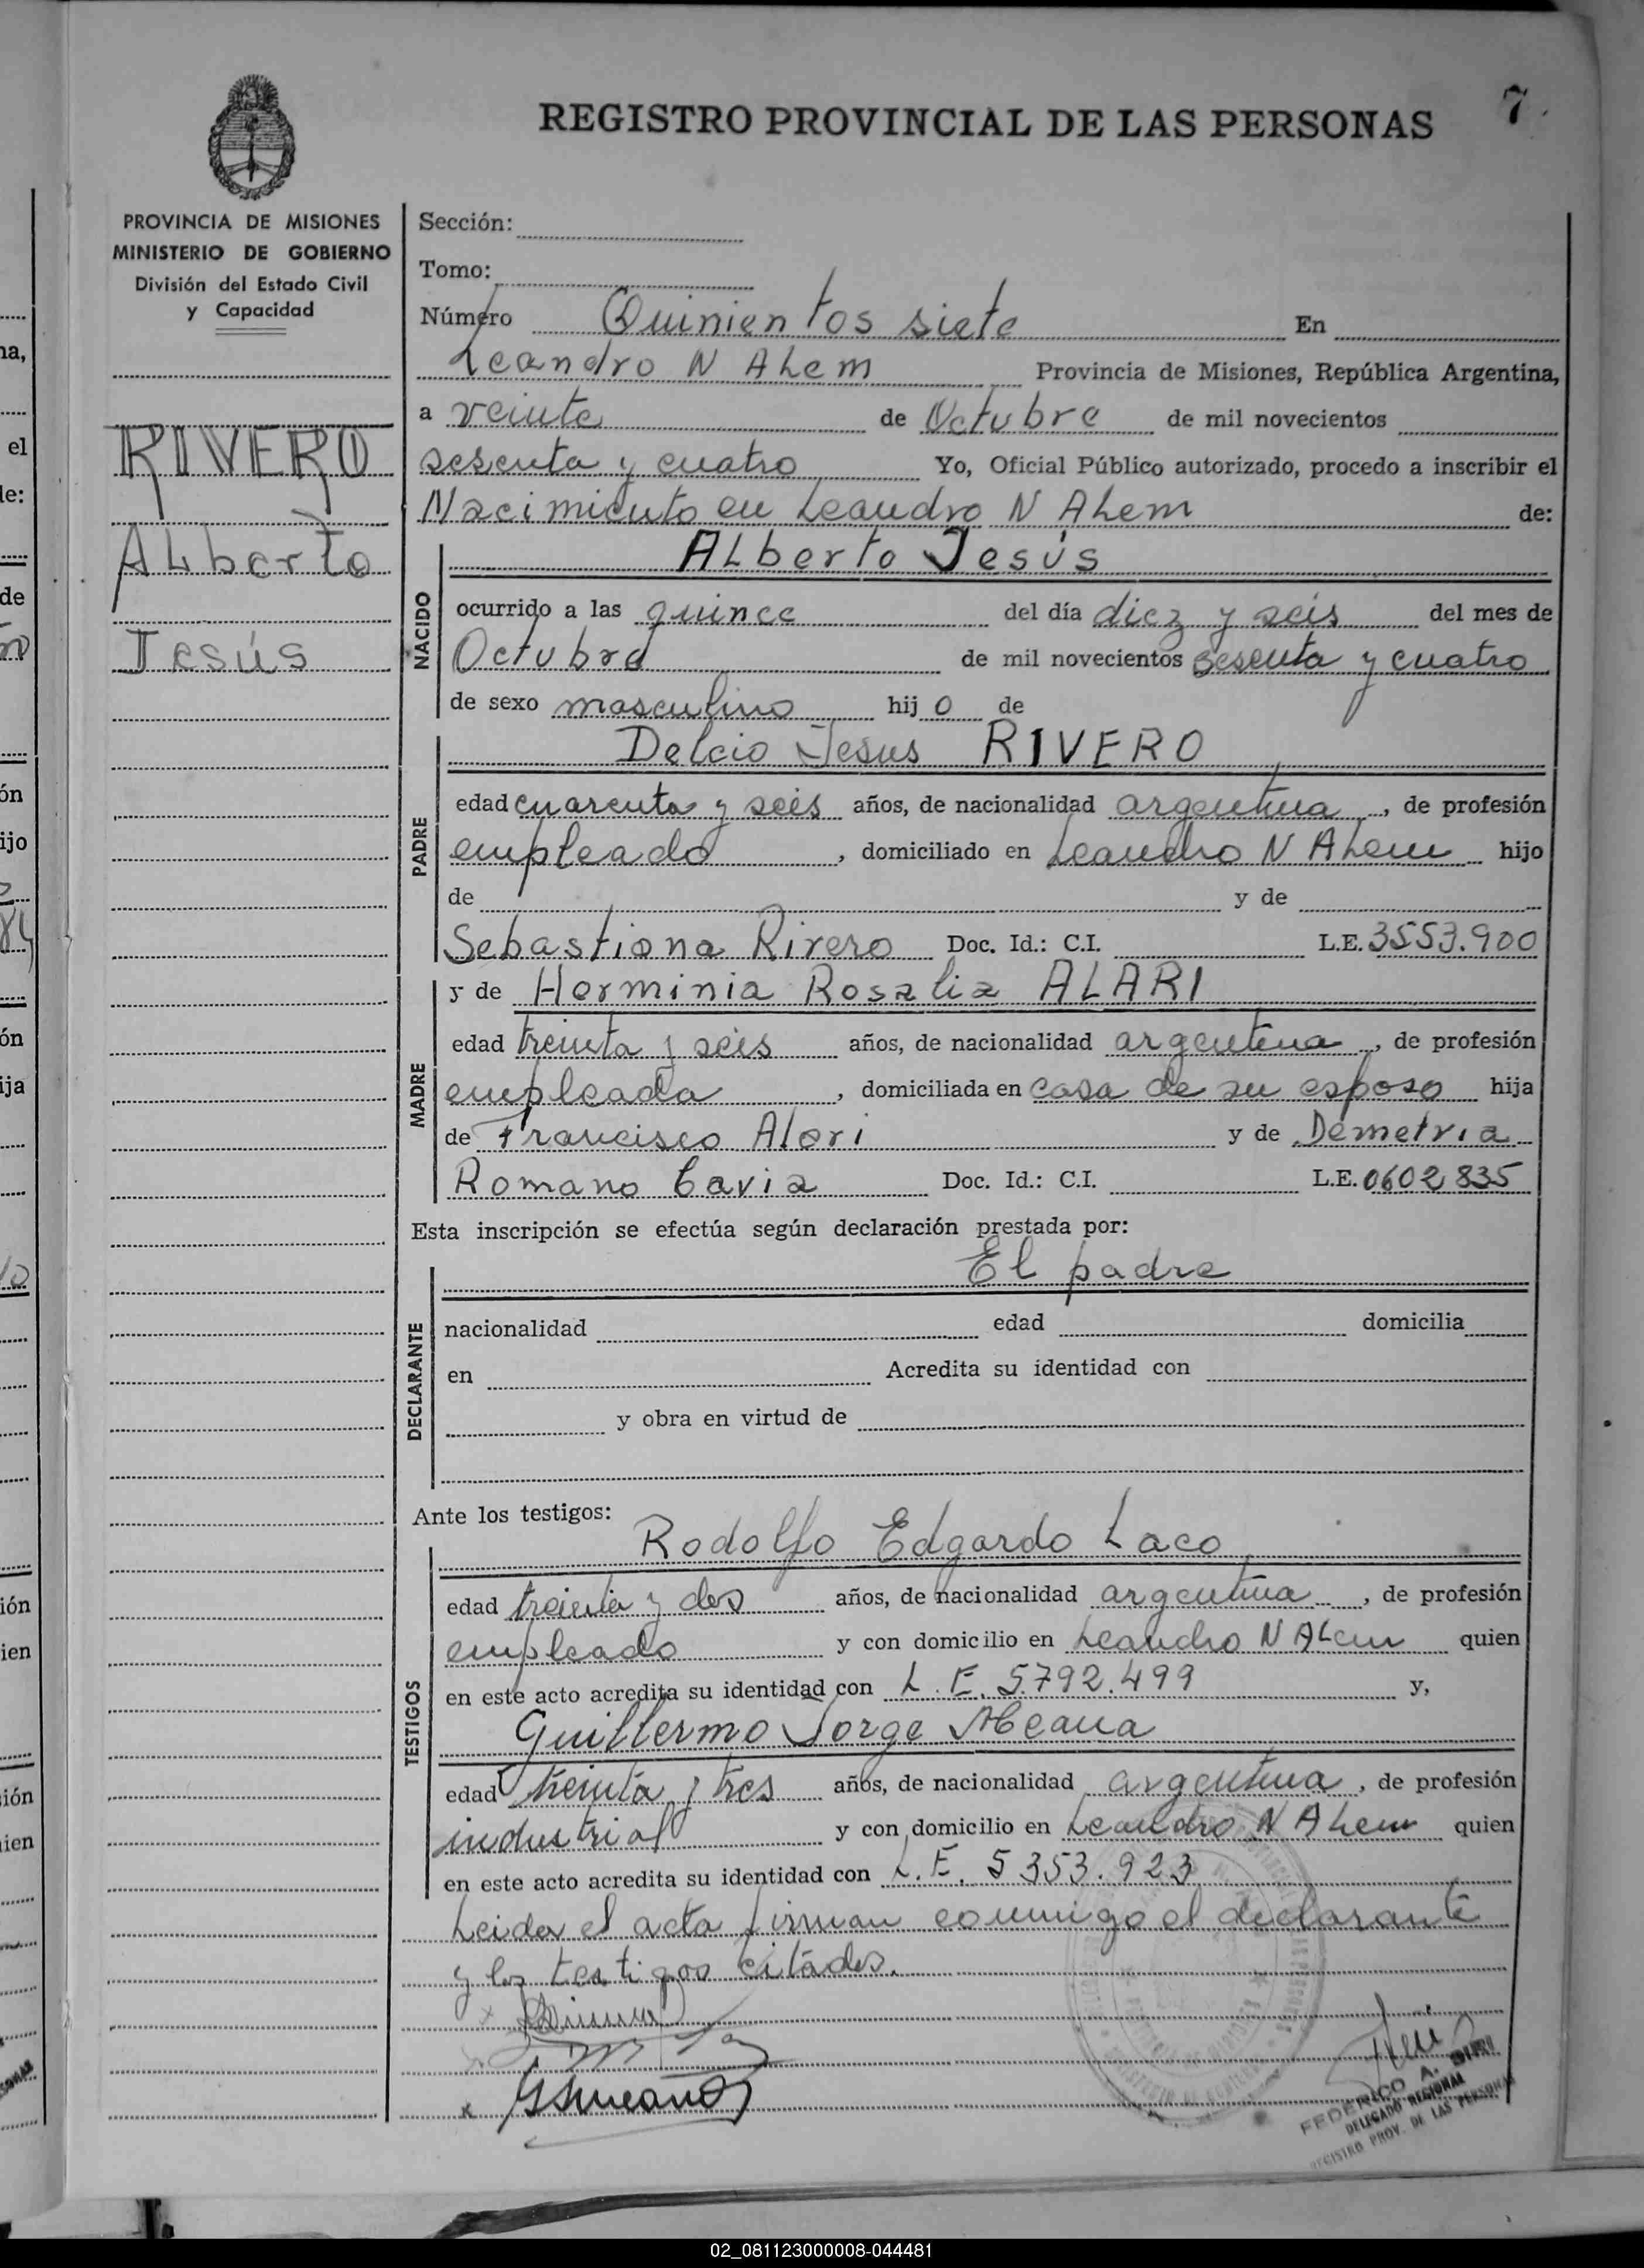 7
REGISTRO PROVINCIAL DE LAS PERSONAS
PROVINCIA DE MISIONES
MINISTERIO DE GOBIERNO
División del Estado Civil
y Capacidad
RIVERO
Alberto
Jesús
Sección:
Tomo:
Número Quinientos siete En
Leandro N Alem Provincia de Misiones, República Argentina,
a veinte de Octubre de mil novecientos
sesenta y cuatro Yo, Oficial Público autorizado, procedo a inscribir el
Nacimiento en Leandro N Alem de:
NACIDO
Alberto Jesús
ocurrido a las quince del día diez y seis del mes de
Octubre de mil novecientos sesenta y cuatro
de sexo masculino hijo de
PADRE
Delcio Jesus RIVERO
edad cuarenta y seis años, de nacionalidad argentina, de profesión
empleado, domiciliado en Leandro N Alem hijo
de y de
Sebastiana Rivero Doc. Id.: C.I. L.E. 3553.900
MADRE
y de Herminia Rosalia ALARI
edad treinta y seis años, de nacionalidad argentina, de profesión
empleada, domiciliada en casa de su esposo hija
de Francisco Alari y de Demetria
Romano Cavia Doc. Id.: C.I. L.E. 0602835
Esta inscripción se efectúa según declaración prestada por:
DECLARANTE
El padre
nacionalidad edad domicilia
en Acredita su identidad con
y obra en virtud de
Ante los testigos:
TESTIGOS
Rodolfo Edgardo Laco
edad treinta y dos años, de nacionalidad argentina, de profesión
empleado y con domicilio en Leandro N Alem quien
en este acto acredita su identidad con L.E. 5.792.499 y,
Guillermo Jorge
edad treinta y tres años, de nacionalidad argentina, de profesión
industrial y con domicilio en Leandro N Alem quien
en este acto acredita su identidad con L.E. 5353.923
Leida el acta firman conmigo el declarante
y los testigos citados.
FEDERICO A.
DELEGADO REGIONAL
REGISTRO PROV. DE LAS PERSONAS
02_081123000008-044481